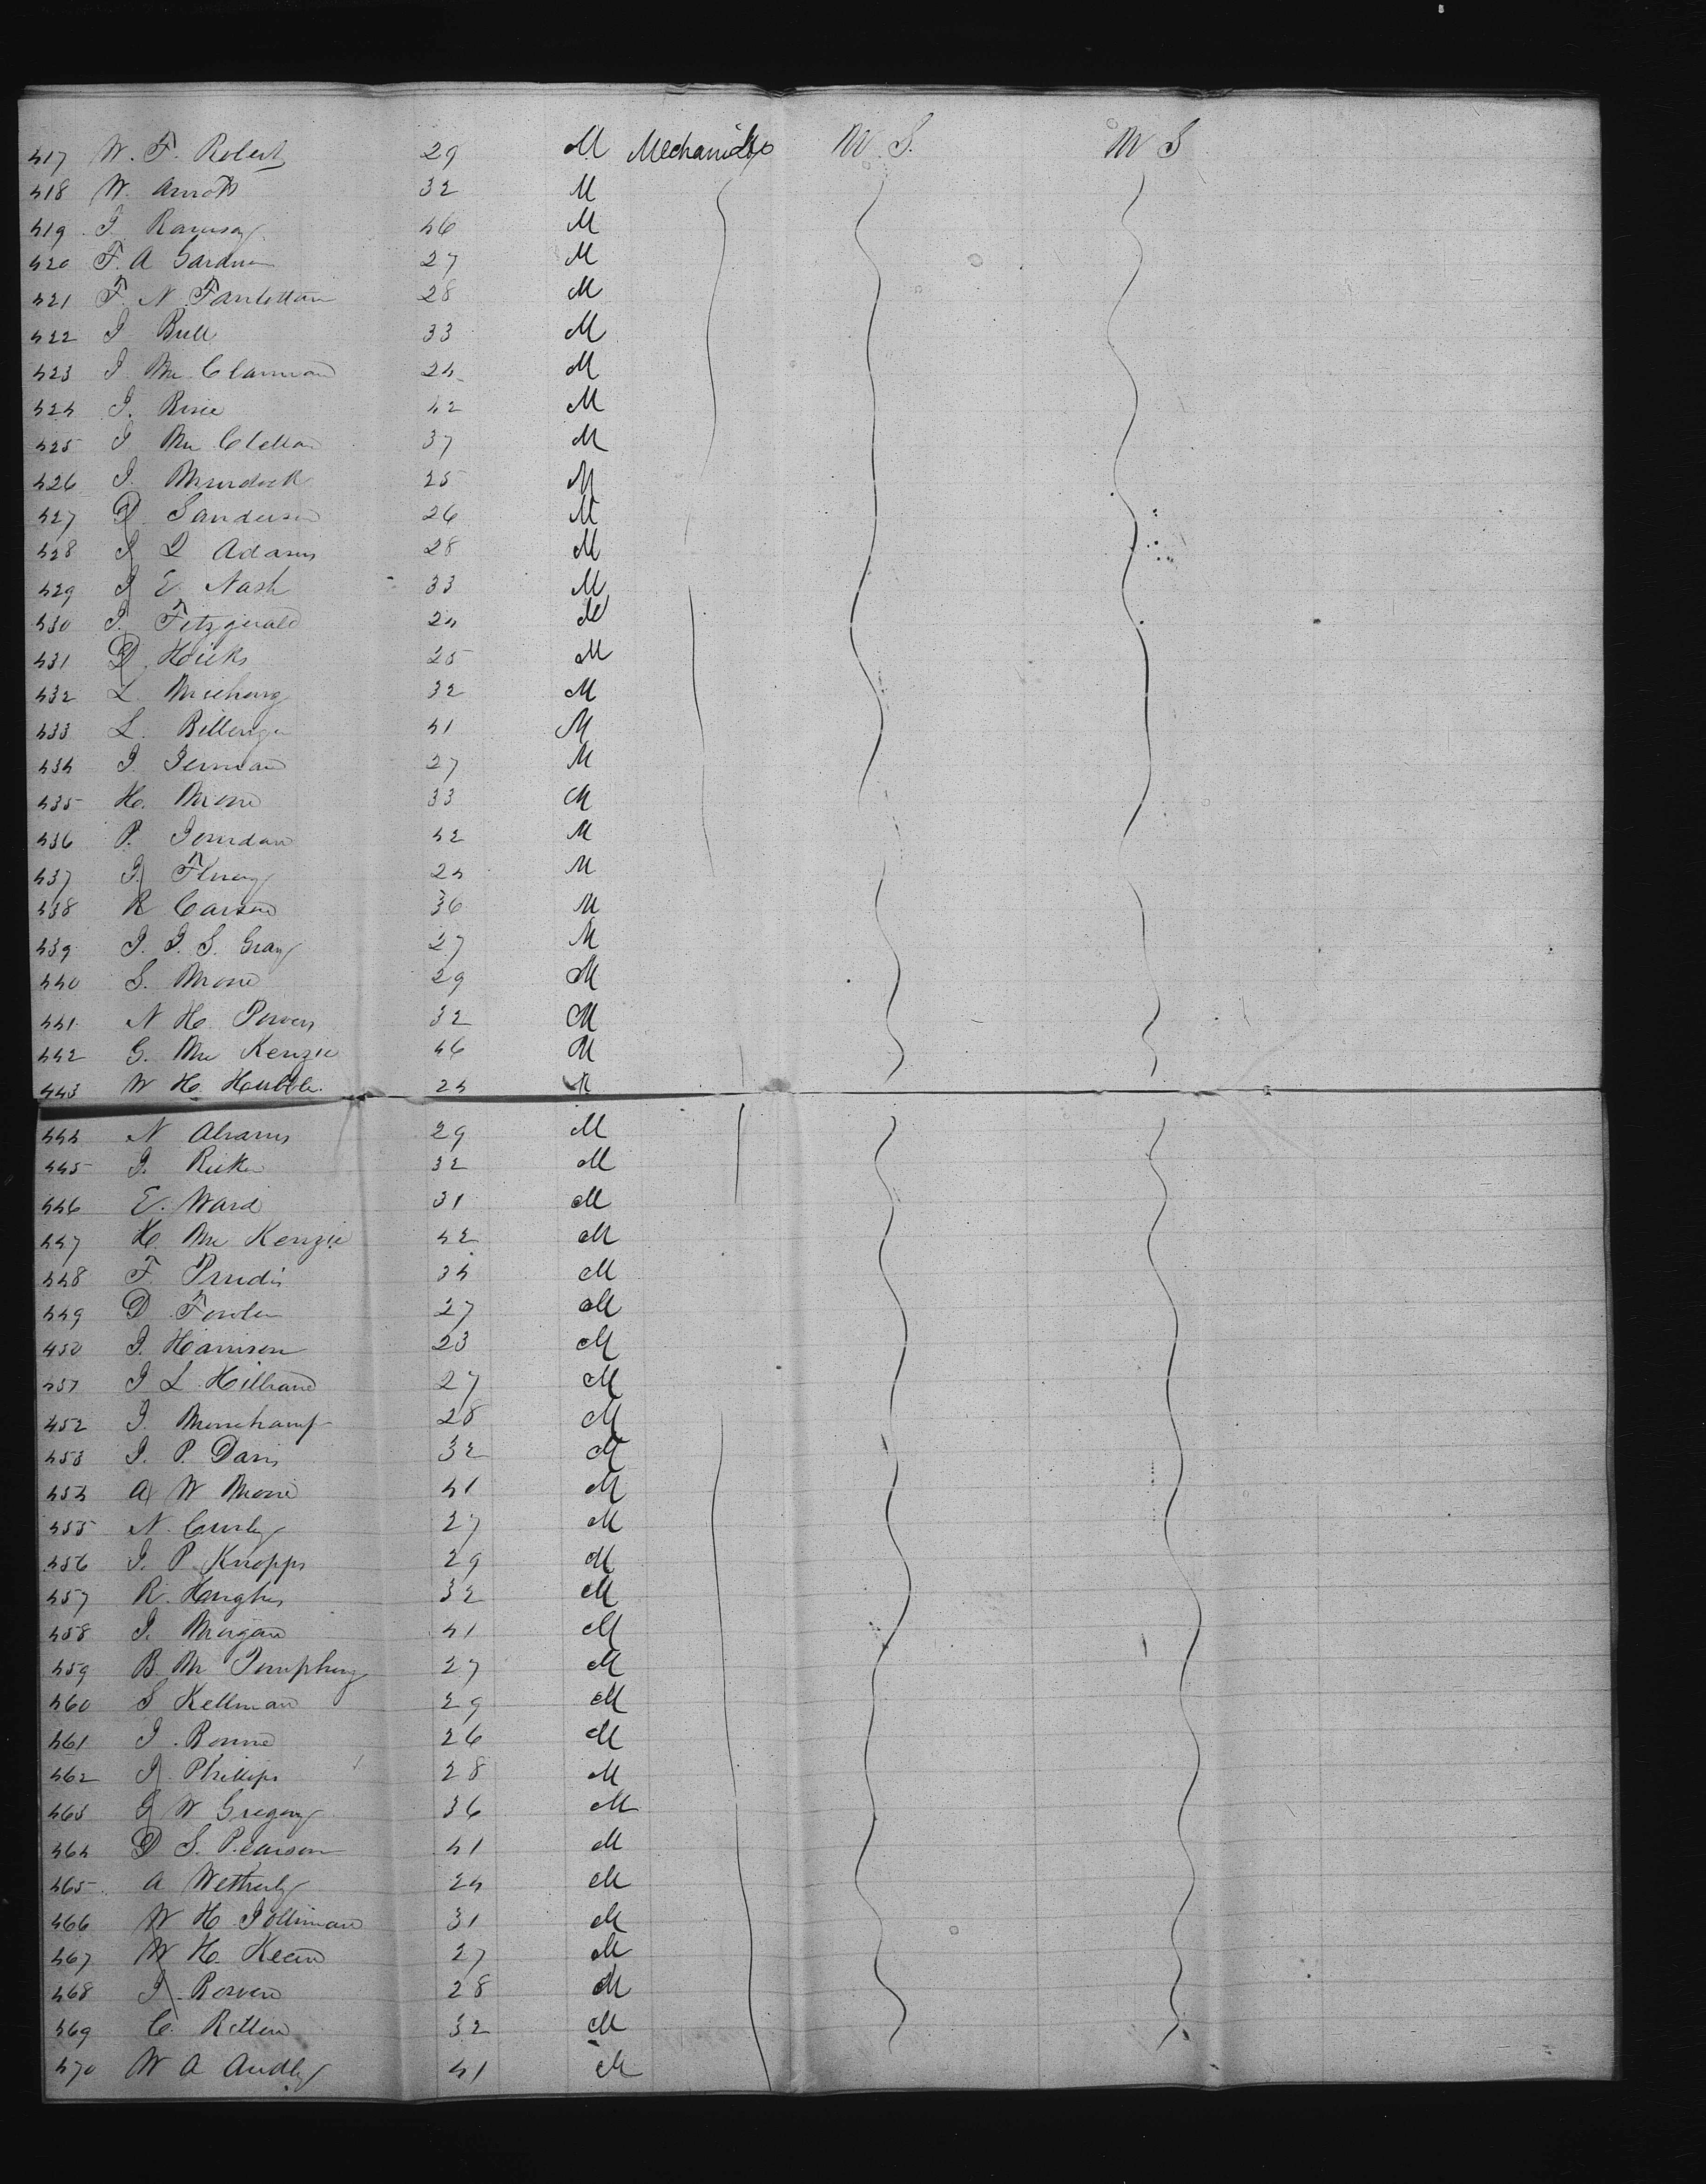 417 W. F. Robert 29 M Mechanics U. S. U S
418 W. Arnott 32 M
419 J. Ramsay 46 M
420 F. A Gardner 27 M
421 F. N. 28 M
422 J Bull 33 M
423 J Mc 24 M
424 J. 42 M
425 J Mc Clellan 37 M
426 J. Murdock 25 M
427 D Sanderson 26 M
428 J Q Adams 28 M
429 J E. Nash 33 M
430 J. Fitzgerald 24 M
431 D. Hicks 25 M
432 L. 32 M
433 L. Billenger 41 M
434 J. Jerman 27 M
435 H. Moore 33 M
436 P. Jourdan 42 M
437 J. Flurry 24 M
438 R Carson 36 M
439 J. J. S. Gray 27 M
440 S. Moore 29 M
441 N H. Powers 32 M
442 G. Mc Kenzie 46 M
443 W H. Hubble 24 M
444 N Abrams 29 M
445 J. Ricker 32 M
446 E. Ward 31 M
447 H. Mc Kenzie 42 M
448 F. 34 M
449 D Fowler 27 M
450 J. Harrison 23 M
451 J L. 27 M
452 J. 28 M
453 J. P. Davis 32 M
454 A W Moore 41 M
455 N. 27 M
456 J. P. Knopps 29 M
457 R. Hughes 32 M
458 J. Morgan 41 M
459 B. M. 27 M
460 S Kellman 29 M
461 J. 26 M
462 J. Phillips 28 M
463 G W Gregory 36 M
464 D S. Pearson 41 M
465 A Wetherly 24 M
466 W H Tolliman 31 M
467 W H. Keen 27 M
468 J. Bowen 28 M
469 C. Ritten 32 M
470 W A Audly 41 M